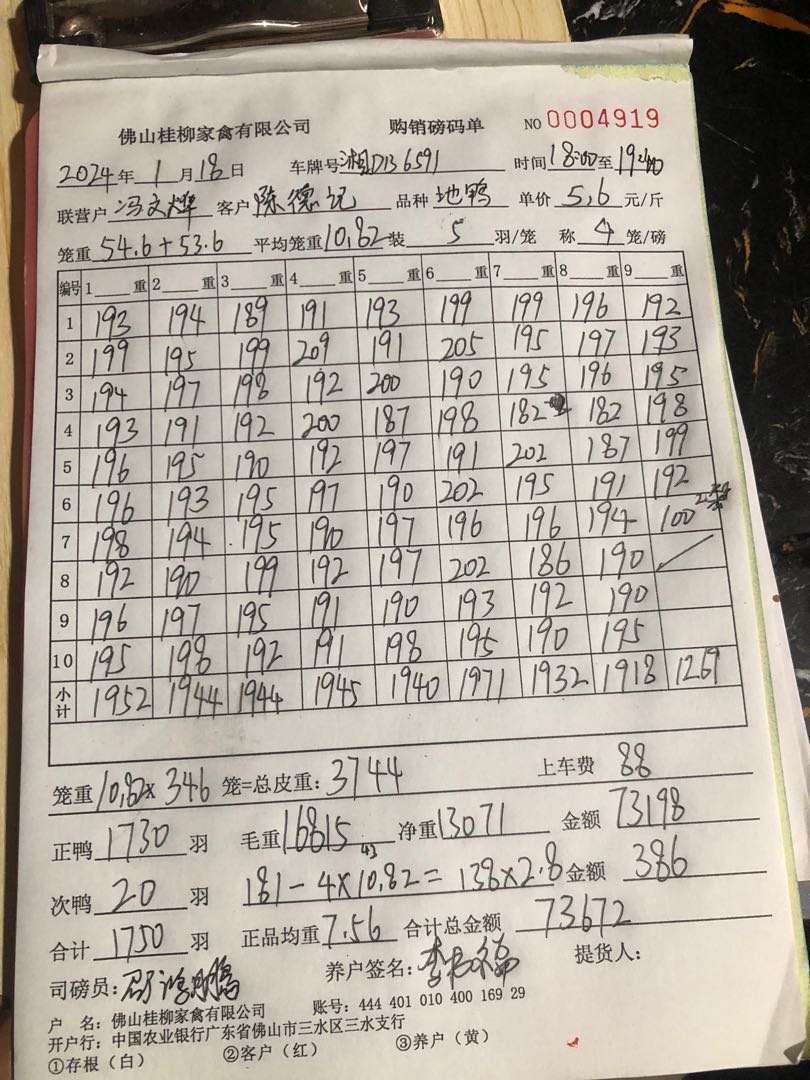 佛山桂柳家禽有限公司 购销磅码单 NO 0004919
2024年 1 月 18 日 车牌号 湘D136591 时间 18:00 至 19:40
联营户 冯文烽 客户 陈德记 品种 地鸭 单价 5.6 元/斤
笼重 54.6+53.6 平均笼重 10.82 装 5 羽/笼 称 4 笼/磅
编号 1 重 2 重 3 重 4 重 5 重 6 重 7 重 8 重 9 重
1 193 194 189 191 193 199 199 196 192
2 199 195 199 209 191 205 195 197 193
3 194 197 198 192 200 190 195 196 195
4 193 191 192 200 187 198 182 182 198
5 196 195 190 192 197 191 202 187 199
6 196 193 195 197 190 202 195 191 192
7 198 194 195 190 197 196 196 194 100
8 192 190 199 192 197 202 186 190
9 196 197 195 191 190 193 192 190
10 195 198 192 191 198 195 190 195
小计 1952 1944 1944 1945 1940 1971 1932 1918 1269
笼重 10.82× 346 笼=总皮重: 3744 上车费 88
正鸭 1730 羽 毛重 16815 净重 13071 金额 73198
43
次鸭 20 羽 181-4×10.82=138×2.8 金额 386
合计 1750 羽 正品均重 7.56 合计总金额 73672
司磅员: 养户签名: 提货人:
户 名: 佛山桂柳家禽有限公司 账号: 444 401 010 400 169 29
开户行: 中国农业银行广东省佛山市三水区三水支行
①存根（白） ②客户（红） ③养户（黄）